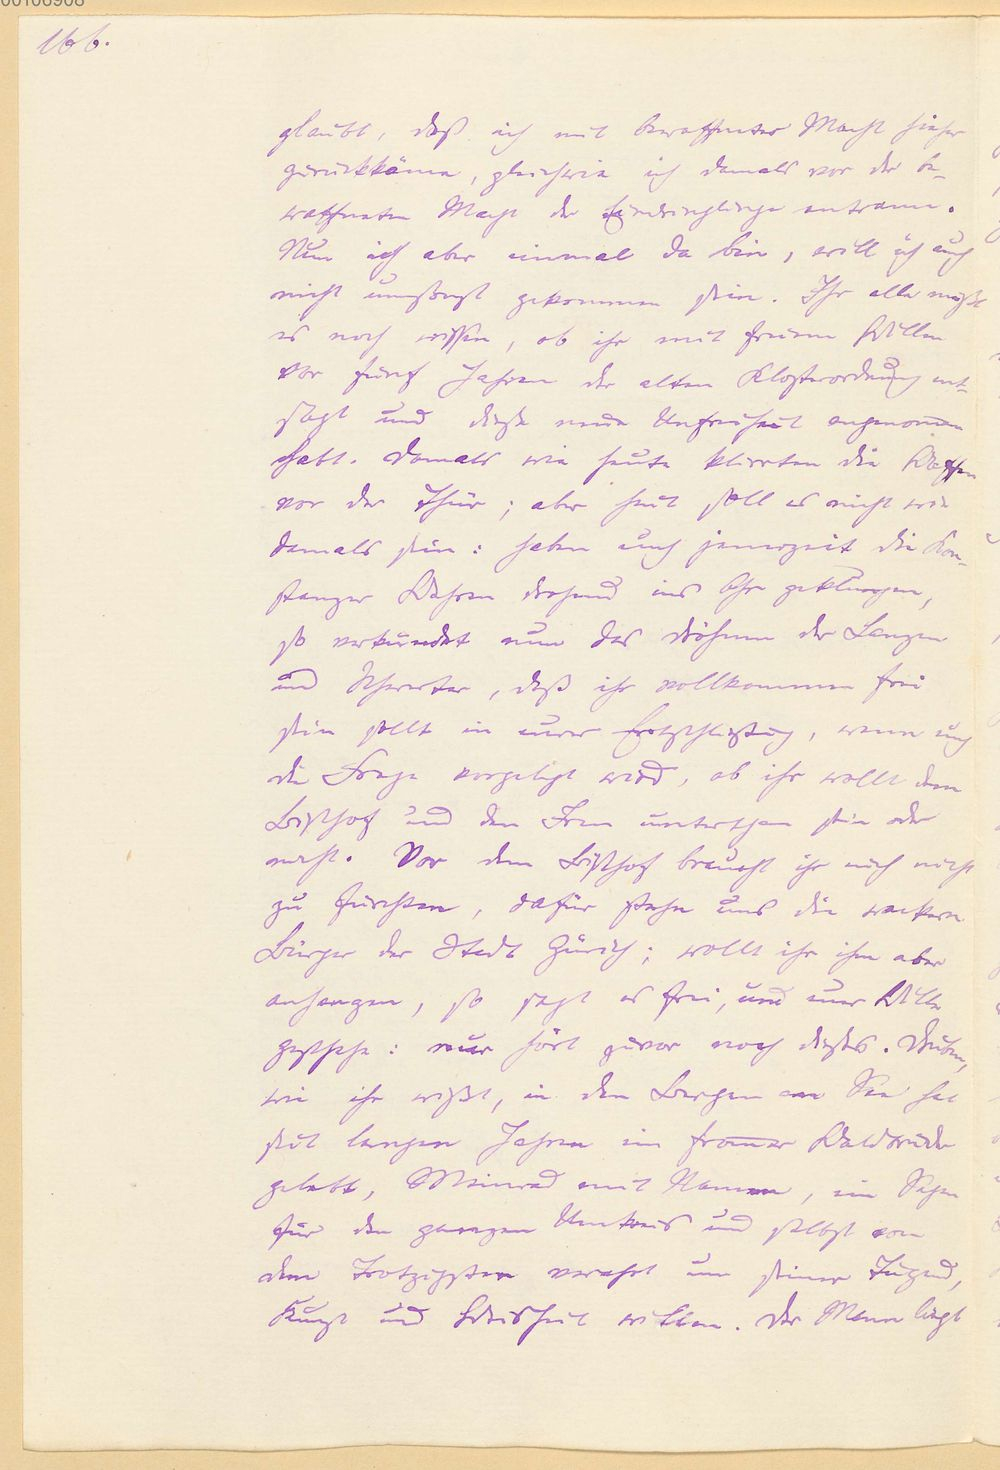 00106908
166.
glaubt, daß ich mit bewaffneter Macht hieher
zurückkäme, gleichwie ich damals vor der be-
waffneten Macht der Eindringlinge entrann.
Nun ich aber einmal da bin, will ich auch
nicht umsonst gekommen sein. Ihr alle müßt
es noch wissen, ob ihr mit freiem Willen
vor fünf Jahren der alten Klosterordnung ent-
sagt und diese neue Unfreiheit angenommen
habt. Damals wie heute klirrten die Waffen
vor der Thür; aber heut soll es nicht wie
damals sein: haben euch jenerzeit die Kon-
stanzer Wehren drohend ins Ohr geklungen,
so verkündet nun das Dröhnen der Lanzen
und Schwerter, daß ihr vollkommen frei
sein sollt in eurer Entschließung, wenn euch
die Frage vorgelegt wird, ob ihr wollt dem
Bischof und den Iren unterthan sein oder
nicht. Vor dem Bischof braucht ihr euch nicht
zu fürchten, dafür stehn uns die wackern
Bürger der Stadt Zürich; wollt ihr ihm aber
anhangen, so sagt es frei, und euer Wille
geschehe: nur hört zuvor noch dieses. Drüben,
wie ihr wißt, in den Bergen am See hat
seit langen Jahren ein frommer Waldbruder
gelebt, Meinrad mit Namen, ein Segen
für den ganzen Umkreis und selbst von
den Trotzigsten verehrt um seiner Tugend,
Kunst und Weisheit willen. Der Mann liegt